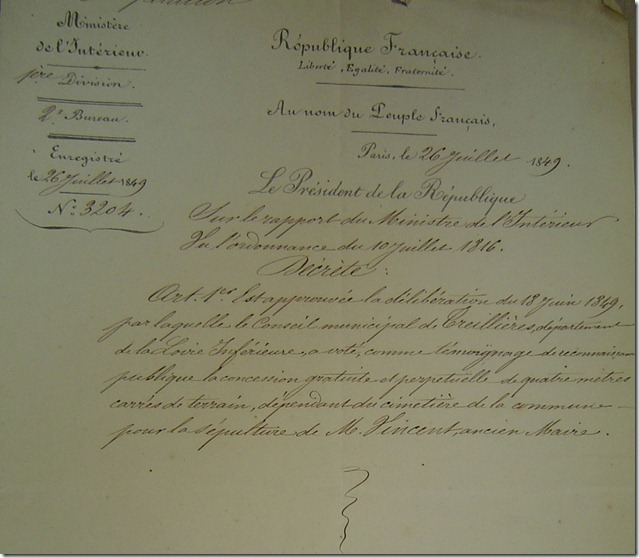 Ministère
de l'Intérieur.
1ère Division.
2e Bureau.
Enregistré
le 26 Juillet 1849
No. 3204.
République Française.
Liberté, Egalité, Fraternité.
Au nom du Peuple français,
Paris, le 26 Juillet 1849.
Le Président de la République
Sur le rapport du Ministre de l'Intérieur
Vu l'ordonnance du 10 Juillet 1816.
Décrète:
Art. 1er Est approuvée la délibération du 18 Juin 1849,
par laquelle le Conseil municipal de Treillières, département
de la Loire Inférieure, a voté, comme témoignage de reconnaissance
publique la concession gratuite et perpetuelle de quatre mètres
carrés de terrain, dépendant du cimetière de la commune
pour la sépulture de M. Vincent, ancien Maire.